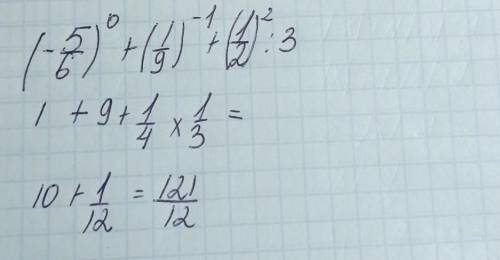 (-5/6)^0 + (1/9)^-1 + (1/2)^2 : 3
1 + 9 + 1/4 × 1/3 =
10 + 1/12 = 121/12